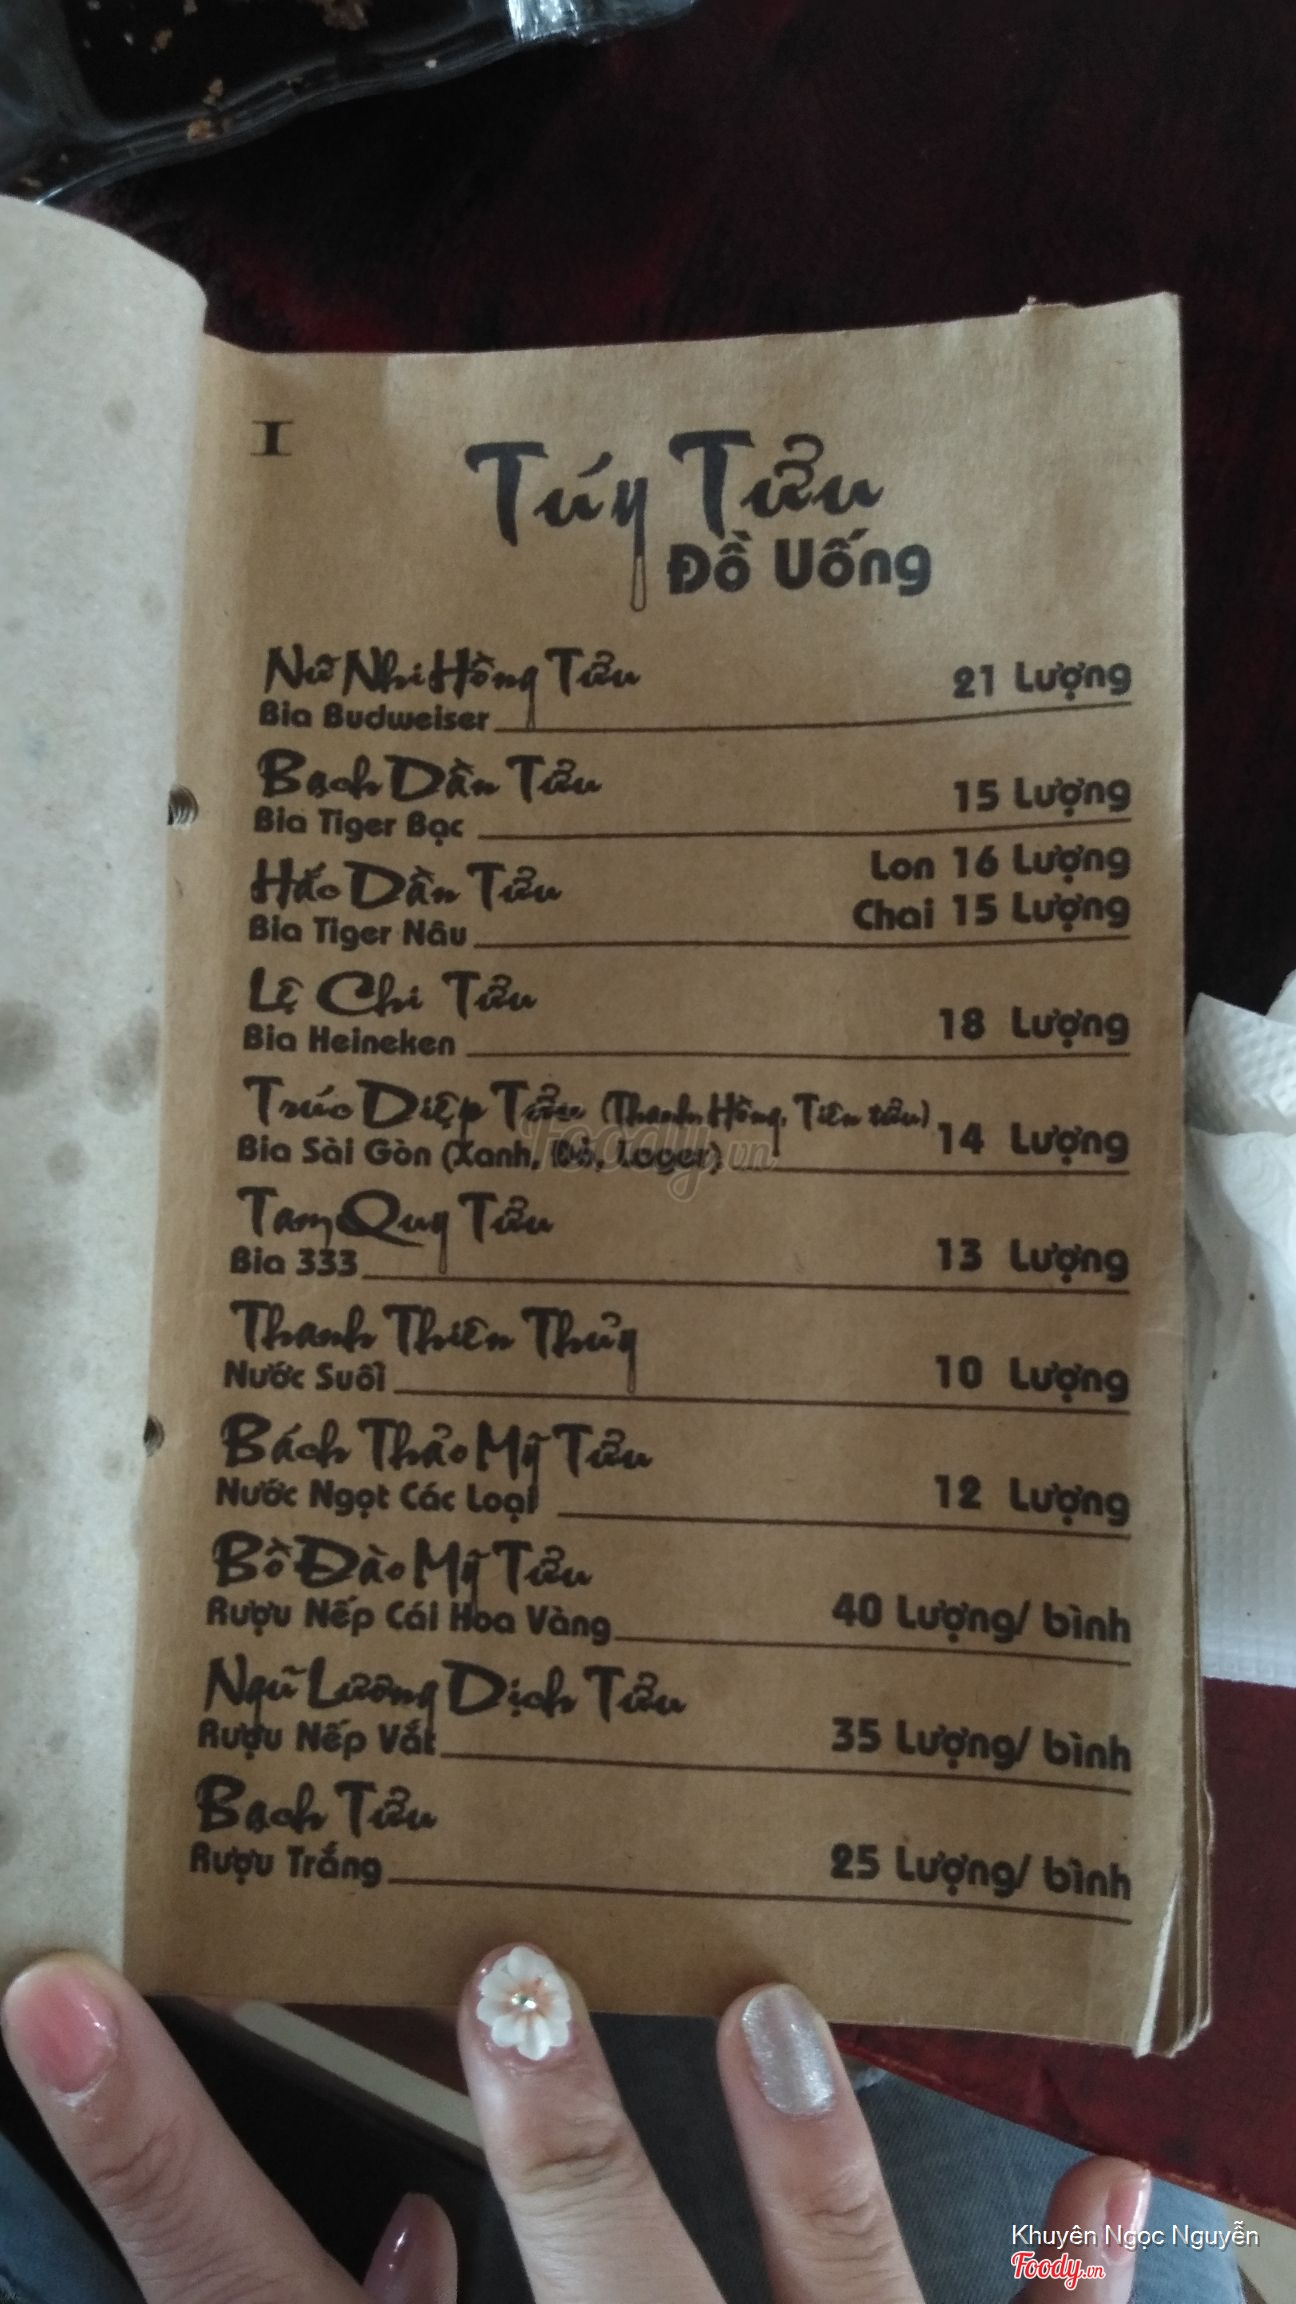 I
Túy Tửu
Đồ Uống
Nữ Nhi Hồng Tửu
Bia Budweiser 21 Lượng
Bạch Dần Tửu
Bia Tiger Bạc 15 Lượng
Hắc Dần Tửu Lon 16 Lượng
Bia Tiger Nâu Chai 15 Lượng
Lệ Chi Tửu
Bia Heineken 18 Lượng
Trúc Diệp Tửu (Thanh, Hồng, Tiên tửu)
Bia Sài Gòn (Xanh, Đỏ, Lager) 14 Lượng
Tam Quy Tửu
Bia 333 13 Lượng
Thanh Thiên Thủy
Nước Suối 10 Lượng
Bách Thảo Mỹ Tửu
Nước Ngọt Các Loại 12 Lượng
Bồ Đào Mỹ Tửu
Rượu Nếp Cái Hoa Vàng 40 Lượng/ bình
Ngũ Lương Dịch Tửu
Rượu Nếp Vắt 35 Lượng/ bình
Bạch Tửu
Rượu Trắng 25 Lượng/ bình
Foody.vn
Khuyên Ngọc Nguyễn
Foody.vn